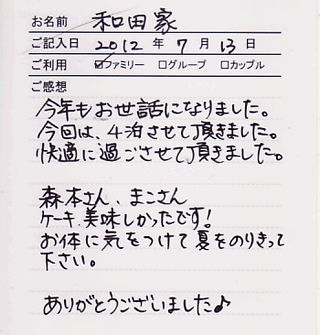 お名前 和田家
ご記入日 2012 年 7 月 13 日
ご利用 ☑ファミリー □グループ □カップル
ご感想
今年もお世話になりました。
今回は、4泊させて頂きました。
快適に過ごさせて頂きました。
森本さん、まこさん
ケーキ、美味しかったです!
お体に気をつけて夏をのりきって
下さい。
ありがとうございました♪